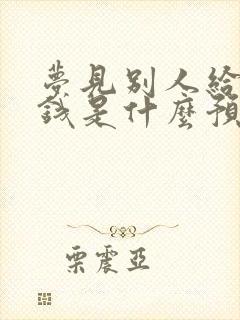 夢見別人給
錢是什麼預
栗震亞